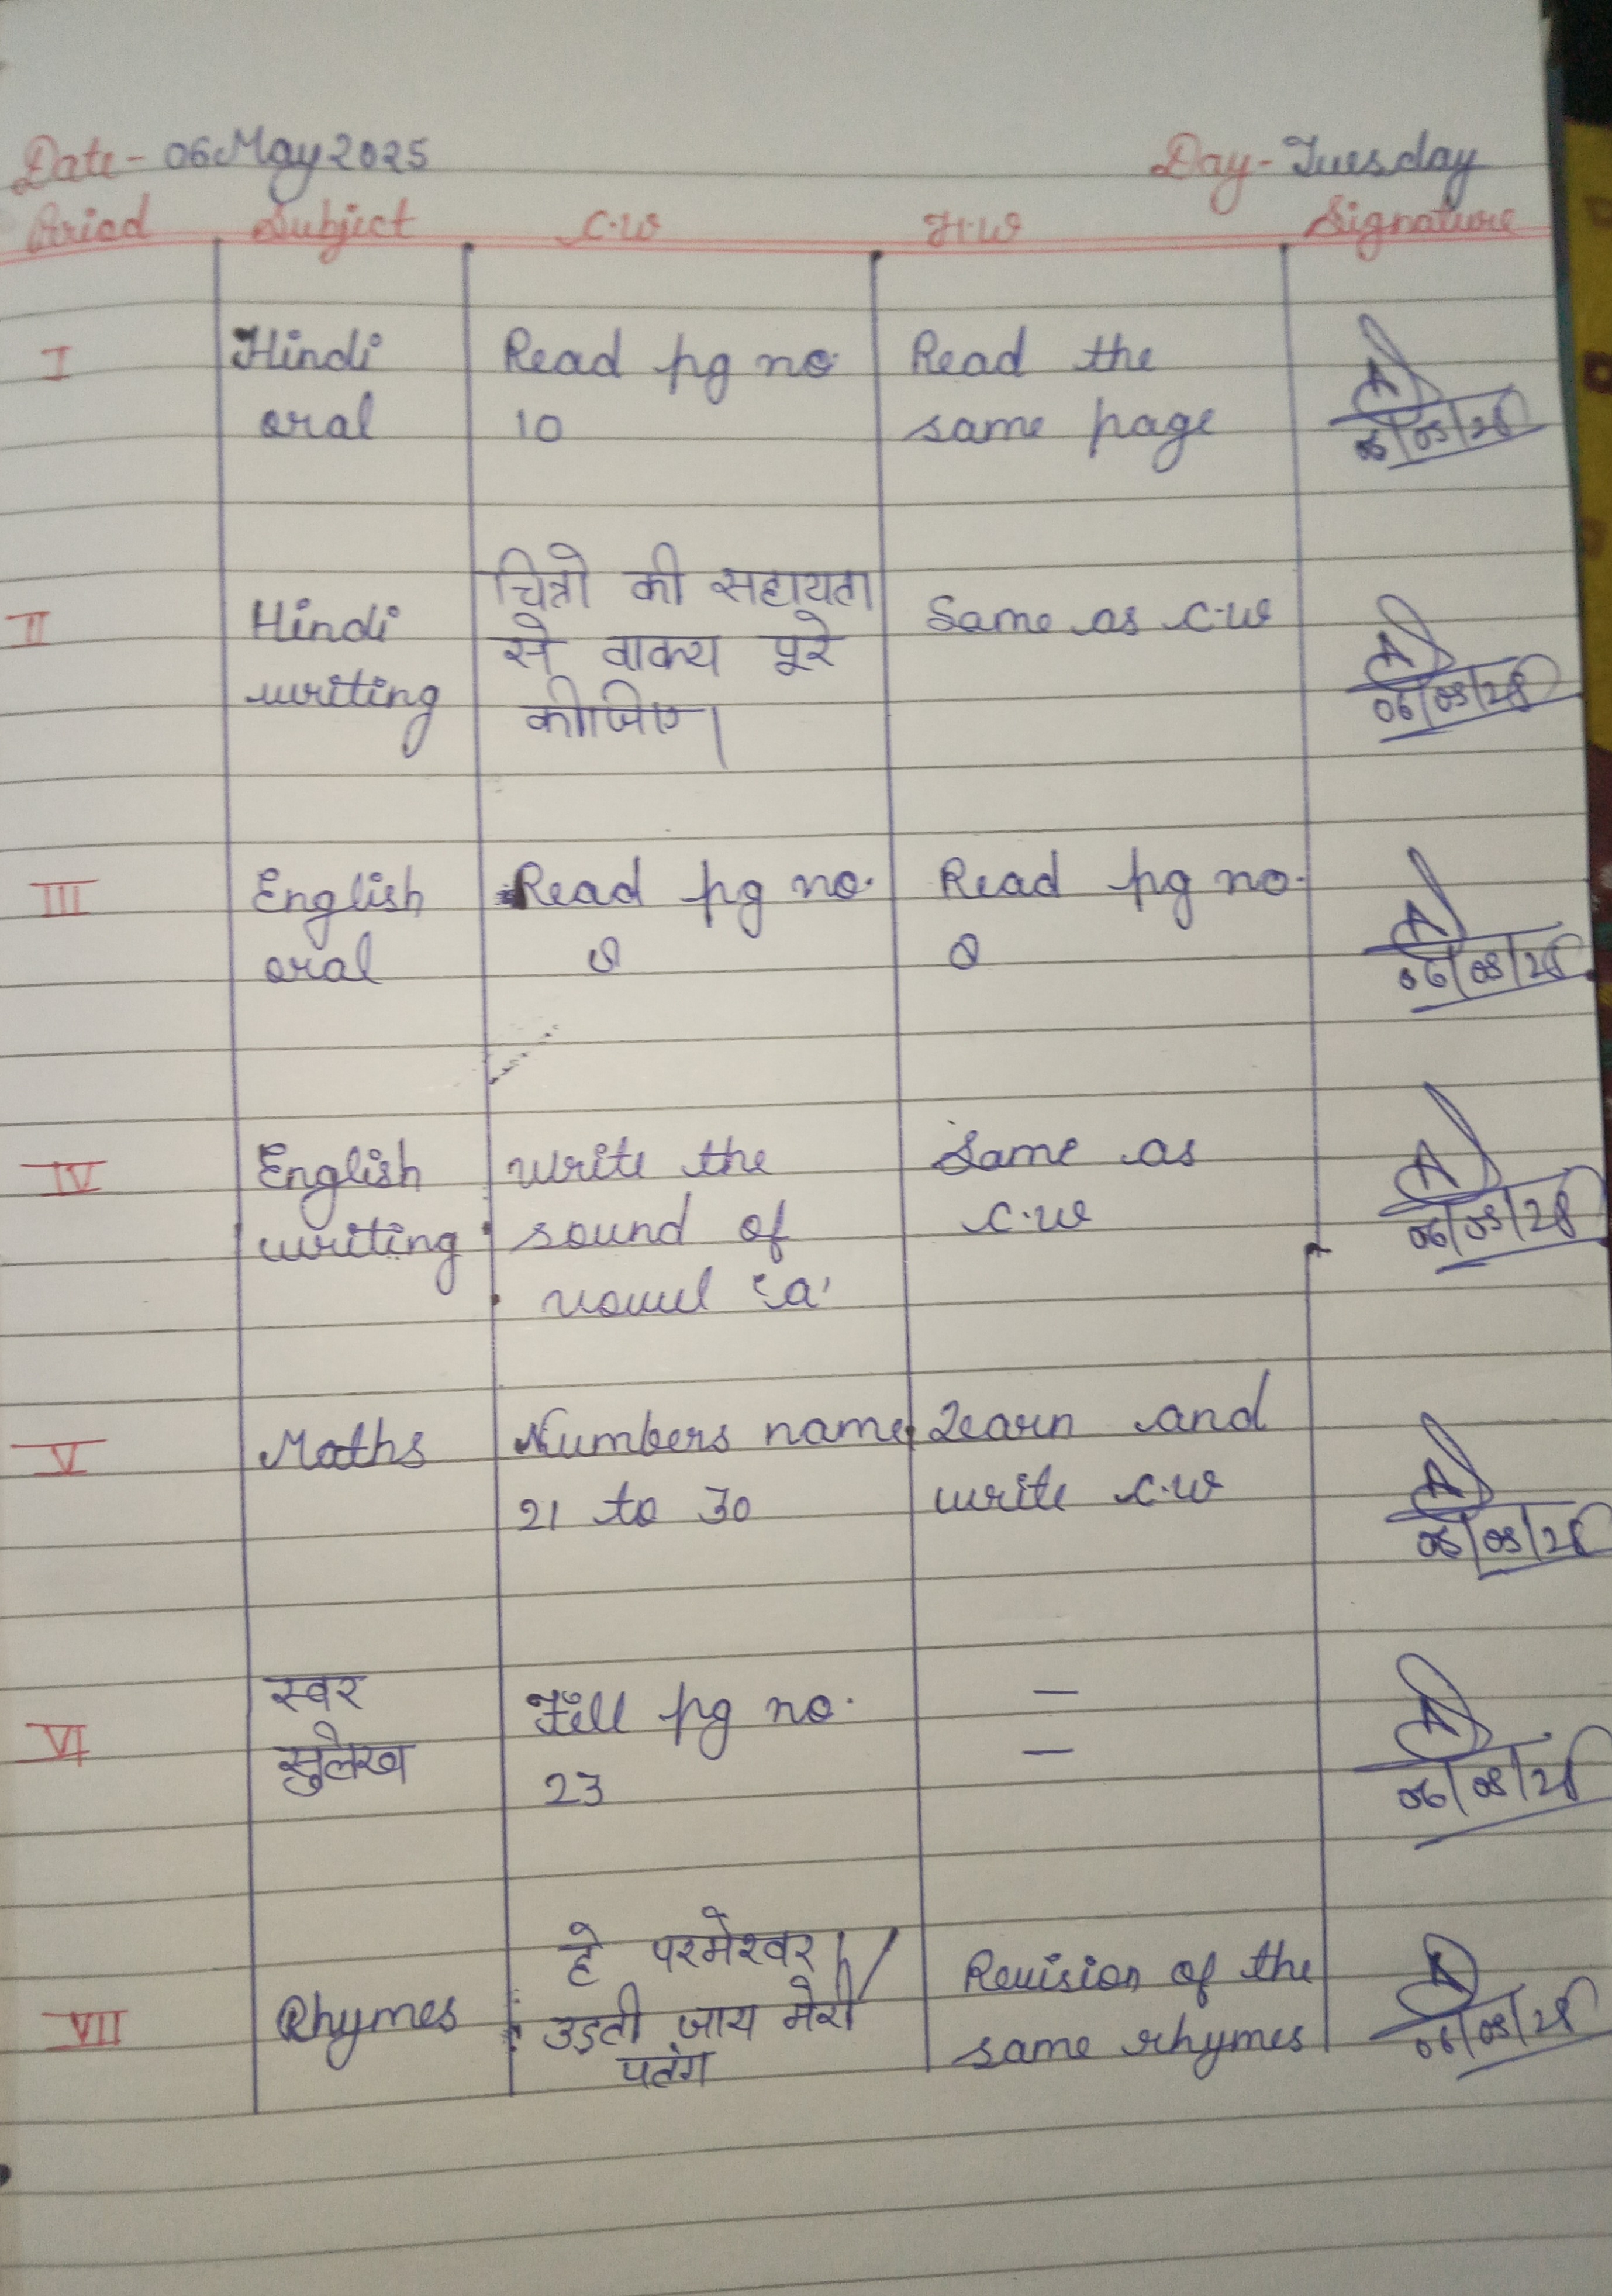 Date - 06 May 2025 Day - Tuesday
Period Subject C.W H.W Signature
I Hindi Read pg no. Read the
oral 10 same page
06/05/25
चित्रो की सहायता
II Hindi से वाक्य पूरे Same as C.W
writing कीजिए।
06/05/25
III English Read pg no. Read pg no.
oral 8 8
06/05/25
IV English write the Same as
writing sound of C.W
vowel 'a'
06/05/25
V Maths Numbers name Learn and
21 to 30 write C.W
06/05/25
स्वर Fill pg no. —
VI सुलेख 23 —
06/05/25
हे परमेश्वर / Revision of the
VII Rhymes उड़ती जाय मेरी same rhymes
पतंग
06/05/25